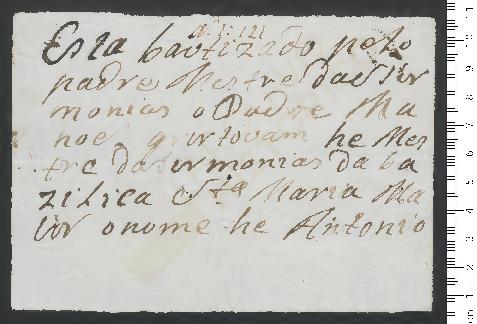 Esta bautizado pelo
padre Mestre das Sir
monias o Padre Ma
noel he Mes
tre da sirmonias da ba
zilica Sta Maria Ma
ior o nome he Antonio